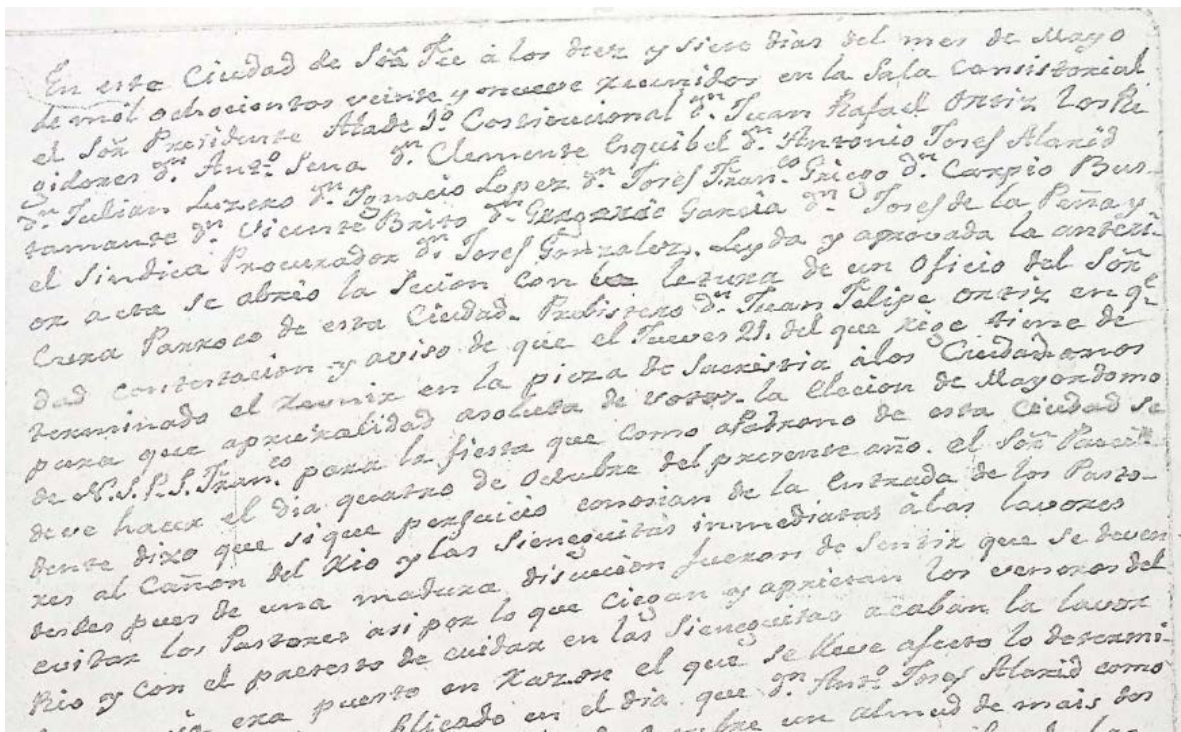 En esta Ciudad de Sta Fee á los diez y siete dias del mes de Mayo
de mil ochocientos veinte y nueve reunidos en la Sala Consistorial
el Sor Presidente Alcade 1º Costitucional dn. Juan Rafael Ortiz Los Re
gidores dn. Antº Sena dn. Clemente Esquibel dn. Antonio Josef Alarid
dn. Julian Luzero dn. Ygnacio Lopez dn. Josef Franco. Griego dn. Carpio Bus-
tamante dn. Vicente Brito dn. García dn. Josef de la Peña y
el Sindico Procurador dn. Josef Gonzalez. Leyda y aprovada la anteri-
or acta se abrio la Secion con letura de un Oficio del Sor
Cura Parroco de esta Ciudad Prebistero dn. Juan Felipe Ortiz en qe.
dad contestacion y aviso de que el Jueves 21. del que rige tiene de
terminado el reunir en la pieza de Sacristia á los Ciudadanos
para que apruralidad asoluta de votos la Elecion de Mayordomo
de N.S.P.S. Franco. para la fiesta que como apatrono de esta Ciudad se
deve hacer el dia quatro de Octubre del presente año. el Sor
dente dixo que si que perjuicio conosian de la Entrada de los Pasto-
res al Cañon del Rio y las Sieneguitas inmediatas á las lavores
desdes pues de una madura discucion fueron de Sentir que se deven
evitar los Pastores asi por lo que Ciegan y aprietan los veneros del
Rio y con el pretesto de cuidar en las Sieneguitas acaban la lavor
era puesto en Razon el que se lleve afecto lo determi-
blicado en el dia que dn. Antº Josef Alarid como
un almud de mais dos